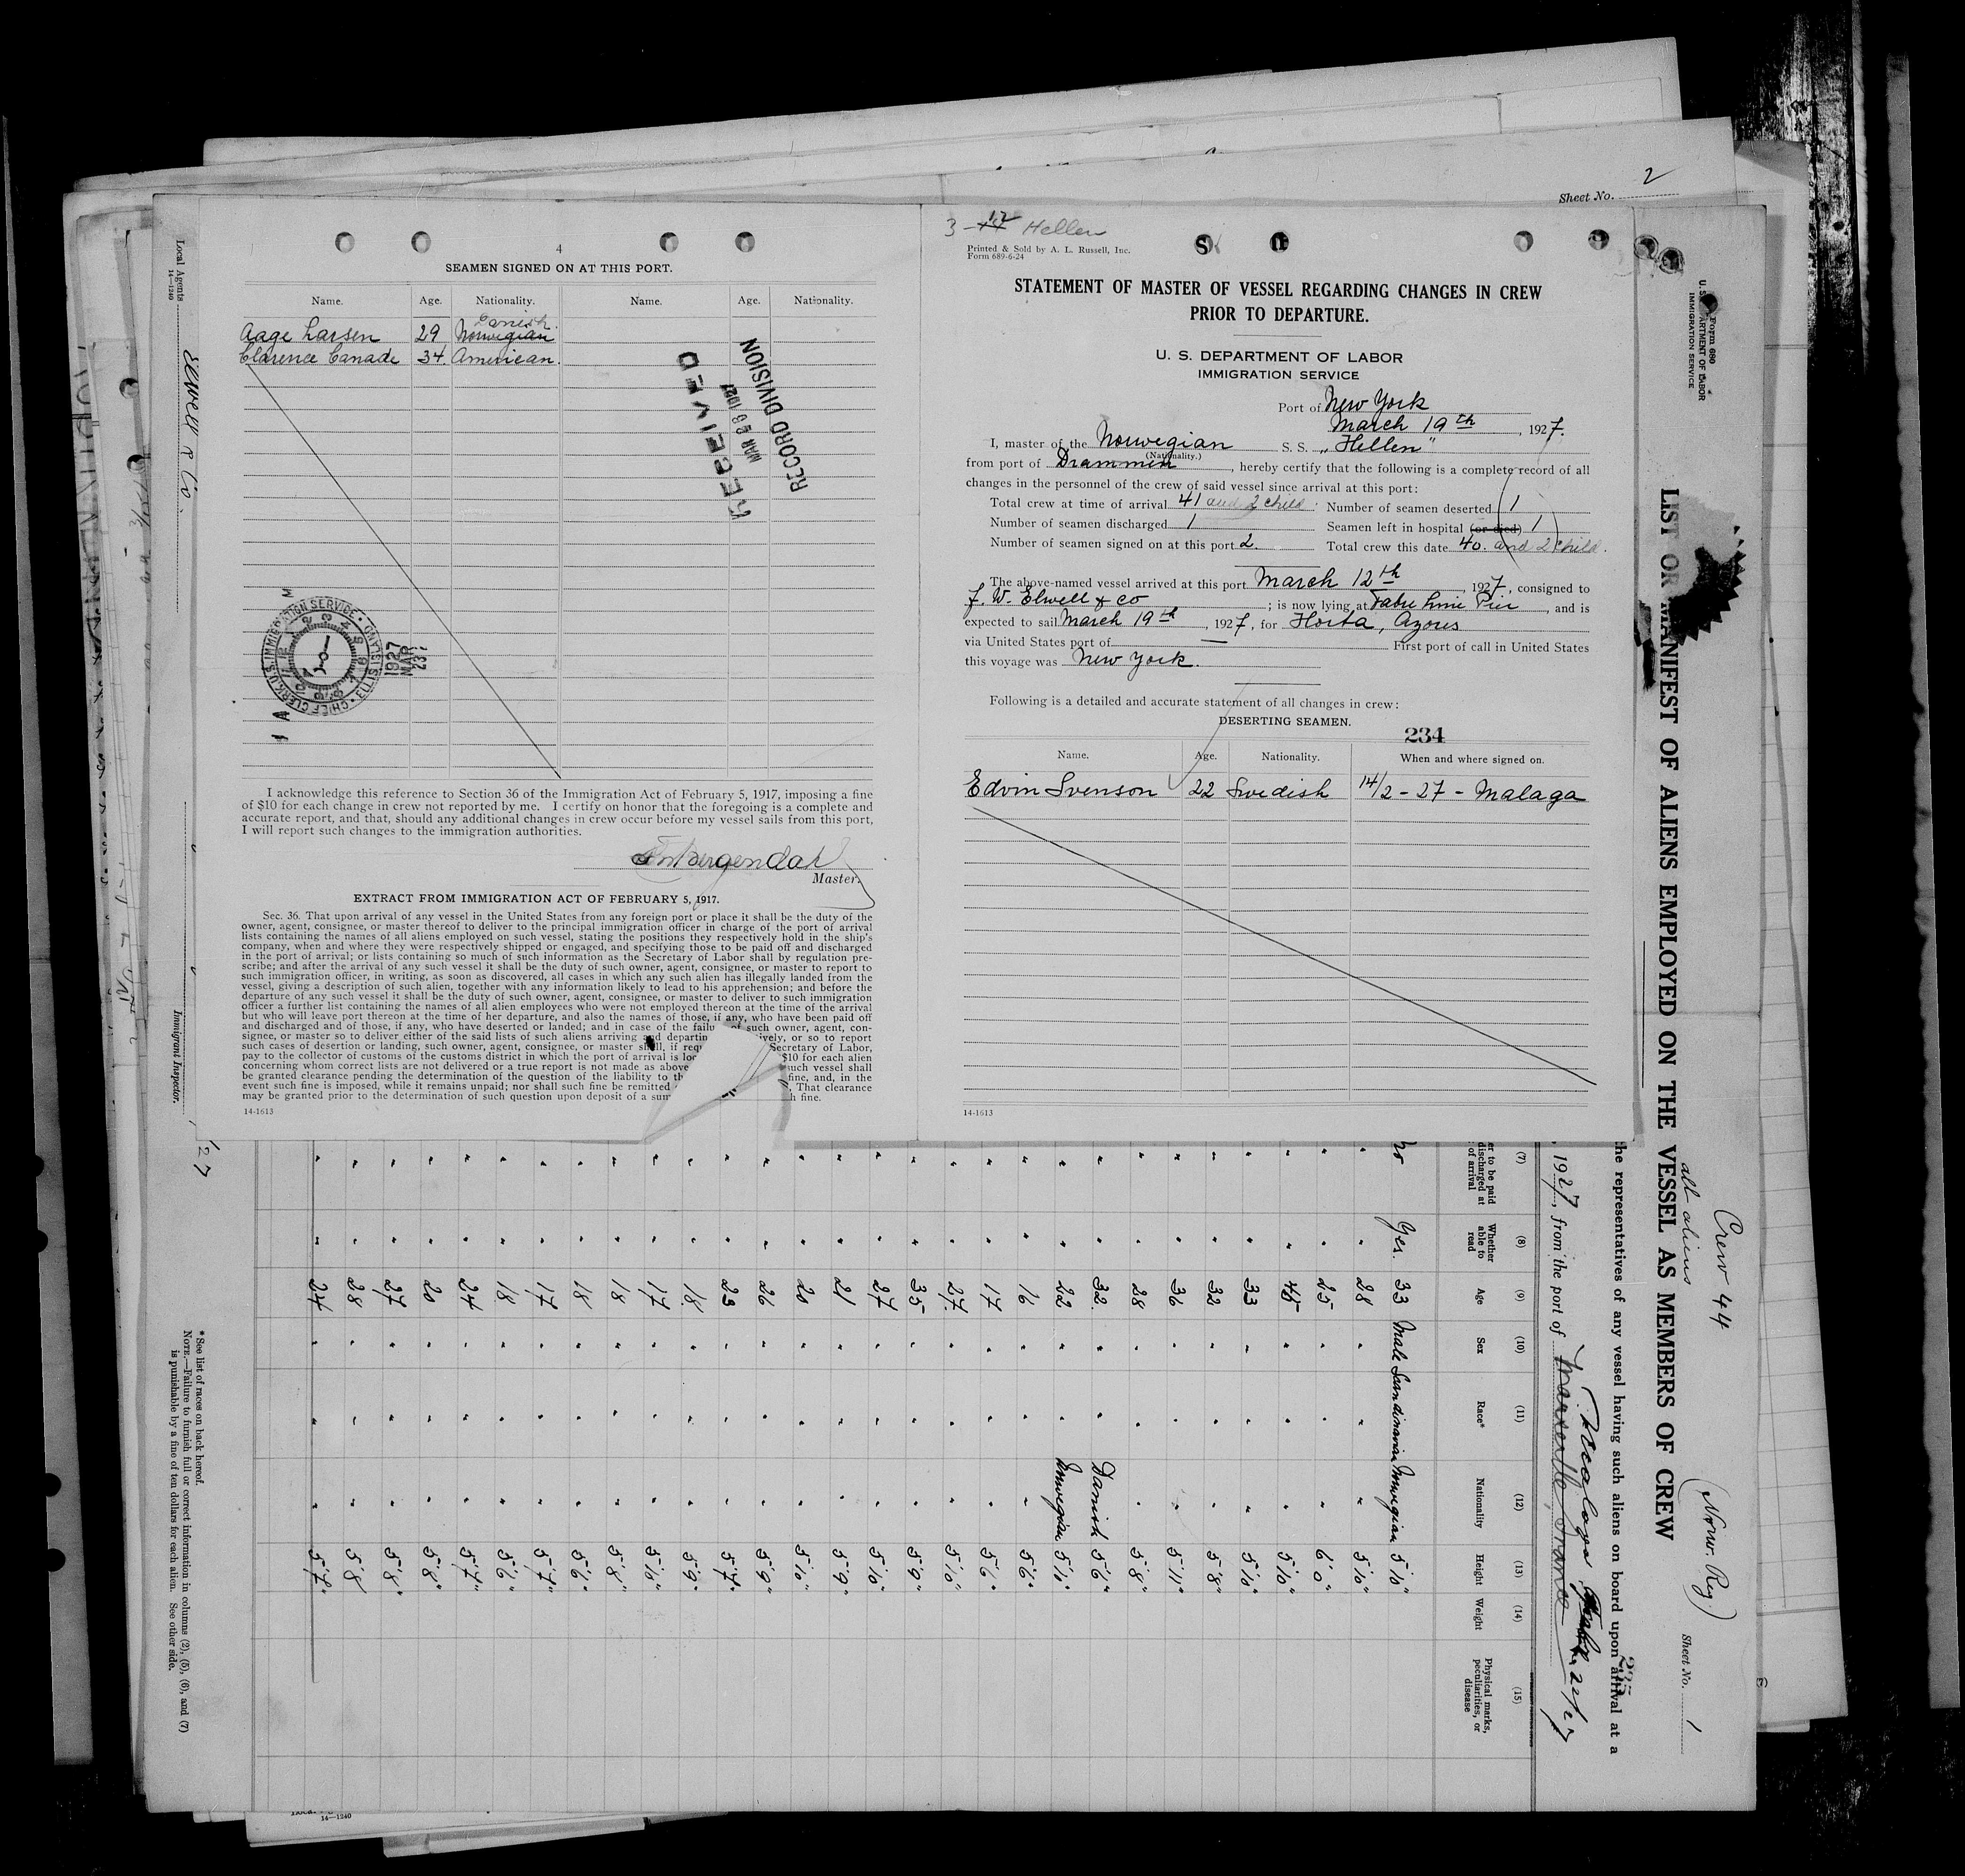 Sheet No. 2
4
SEAMEN SIGNED ON AT THIS PORT.
Name. Age. Nationality. Name. Age. Nationality.
Danish.
Aage Larsen 29 Norwegian
Clarence Canade 34. American.
RECEIVED
MAR 23 1927
RECORD DIVISION
CHIEF CLERK U.S. IMMIGRATION SERVICE • ELLIS ISLAND •
1927
MAR
23
I acknowledge this reference to Section 36 of the Immigration Act of February 5, 1917, imposing a fine
of $10 for each change in crew not reported by me. I certify on honor that the foregoing is a complete and
accurate report, and that, should any additional changes in crew occur before my vessel sails from this port,
I will report such changes to the immigration authorities.
Master.
EXTRACT FROM IMMIGRATION ACT OF FEBRUARY 5, 1917.
Sec. 36. That upon arrival of any vessel in the United States from any foreign port or place it shall be the duty of the
owner, agent, consignee, or master thereof to deliver to the principal immigration officer in charge of the port of arrival
lists containing the names of all aliens employed on such vessel, stating the positions they respectively hold in the ship's
company, when and where they were respectively shipped or engaged, and specifying those to be paid off and discharged
in the port of arrival; or lists containing so much of such information as the Secretary of Labor shall by regulation pre-
scribe; and after the arrival of any such vessel it shall be the duty of such owner, agent, consignee, or master to report to
such immigration officer, in writing, as soon as discovered, all cases in which any such alien has illegally landed from the
vessel, giving a description of such alien, together with any information likely to lead to his apprehension; and before the
departure of any such vessel it shall be the duty of such owner, agent, consignee, or master to deliver to such immigration
officer a further list containing the names of all alien employees who were not employed thereon at the time of the arrival
but who will leave port thereon at the time of her departure, and also the names of those, if any, who have been paid off
and discharged and of those, if any, who have deserted or landed; and in case of the failu of such owner, agent, con-
signee, or master so to deliver either of the said lists of such aliens arriving and departin ively, or so to report
such cases of desertion or landing, such owner, agent, consignee, or master shall, if requ Secretary of Labor,
pay to the collector of customs of the customs district in which the port of arrival is loc $10 for each alien
concerning whom correct lists are not delivered or a true report is not made as above uch vessel shall
be granted clearance pending the determination of the question of the liability to th fine, and, in the
event such fine is imposed, while it remains unpaid; nor shall such fine be remitted . That clearance
may be granted prior to the determination of such question upon deposit of a sum h fine.
14-1613
3-12 Hellen
Printed & Sold by A. L. Russell, Inc.
Form 689-6-24
STATEMENT OF MASTER OF VESSEL REGARDING CHANGES IN CREW
PRIOR TO DEPARTURE.
U. S. DEPARTMENT OF LABOR
IMMIGRATION SERVICE
Port of New York
March 19th, 1927.
I, master of the Norwegian S. S. „Hellen"
(Nationality.)
from port of Drammen, hereby certify that the following is a complete record of all
changes in the personnel of the crew of said vessel since arrival at this port:
Total crew at time of arrival 41 and 2 child. Number of seamen deserted 1
Number of seamen discharged 1 Seamen left in hospital (or died) 1
Number of seamen signed on at this port 2. Total crew this date 40. and 2 child.
The above-named vessel arrived at this port March 12th 1927, consigned to
F. W. Elwell & Co ; is now lying at Fabre Line Pier, and is
expected to sail March 19th, 1927, for Horta, Azores
via United States port of — First port of call in United States
this voyage was New York.
Following is a detailed and accurate statement of all changes in crew:
DESERTING SEAMEN.
234
Name. Age. Nationality. When and where signed on.
Edvin Svenson 22 Swedish 14/2-27 - Malaga
14-1613
Form 680
U. S. DEPARTMENT OF LABOR
IMMIGRATION SERVICE
Crew 44
all aliens
(Norw. Reg)
Sheet No. 1
LIST OR MANIFEST OF ALIENS EMPLOYED ON THE VESSEL AS MEMBERS OF CREW
the representatives of any vessel having such aliens on board upon arrival at a
235
, 1927, from the port of Marseille France
Malaga
(7) (8) (9) (10) (11) (12) (13) (14) (15)
er to be paid discharged at of arrival
Whether able to read
Age
Sex
Race*
Nationality
Height
Weight
Physical marks, peculiarities, or disease
no Yes. 33 Male Scandinavian Norwegian 5'10"
" " 28 " " " 5'10"
" " 25 " " " 6'0"
" " 45 " " " 5'10"
" " 33 " " " 5'10"
" " 32 " " " 5'8"
" " 36 " " " 5'11"
" " 28 " " " 5'8"
" " 32. " " Danish 5'6"
" " 22 " " Norwegian 5'11"
" " 16 " " " 5'6"
" " 17 " " " 5'6"
" " 27. " " " 5'10"
" " 35 " " " 5'9"
" " 27 " " " 5'10"
" " 21 " " " 5'9"
" " 20 " " " 5'10"
" " 26 " " " 5'9"
" " 23 " " " 5'7"
" " 18. " " " 5'9"
" " 17 " " " 5'10"
" " 18 " " " 5'8"
" " 18 " " " 5'6"
" " 17 " " " 5'7"
" " 18 " " " 5'6"
" " 24 " " " 5'7"
" " 20 " " " 5'8"
" " 27 " " " 5'8"
" " 28 " " " 5'8"
" " 24 " " " 5'7"
* See list of races on back hereof.
NOTE.—Failure to furnish full or correct information in columns (2), (5), (6), and (7)
is punishable by a fine of ten dollars for each alien. See other side.
Local Agents Elwell & Co.
14—1240
Immigrant Inspector.
14—1240